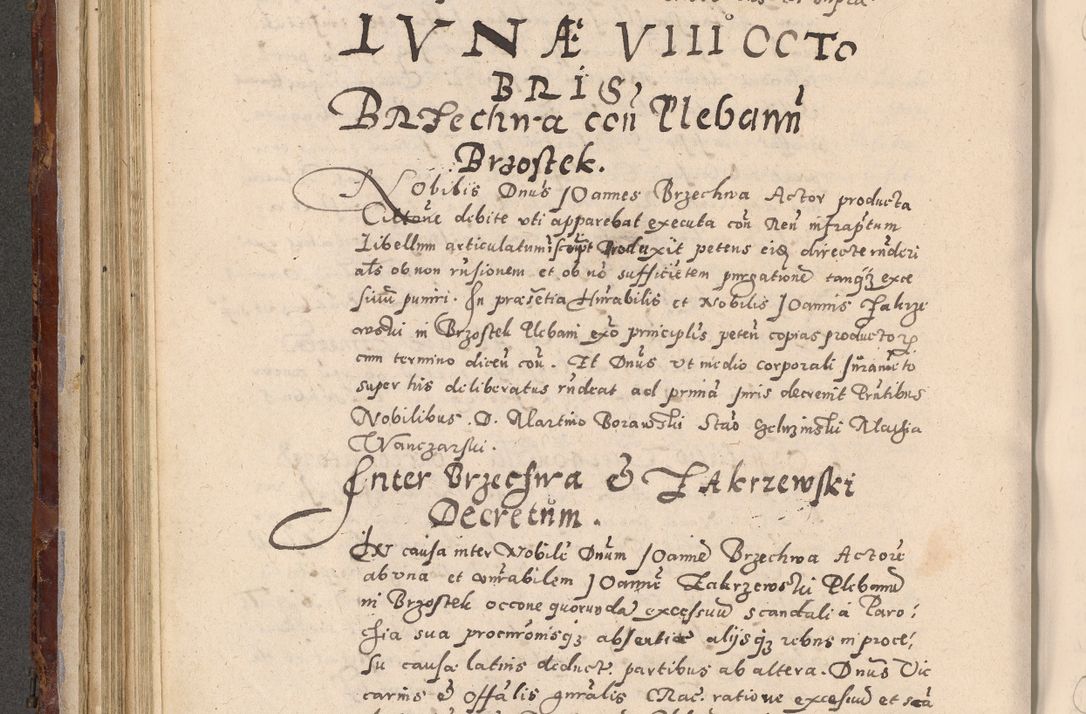 LVNÆ VIII OCTO
BRIS
Brzechwa con Plebanū
Brzostek.
Nobilis Dnus Joannes Brzechwa Actor producta
Citatione debite vti apparebat executa con Reū infraptum
Libellum articulatum script produxit petens directe
als ob non rūsionem et ob nō sufficiētem purgationē tanqz exce
siuū puniri. In præsētia Hnrabilis et Nobilis Joannis Zakrze
wski in Brzostek Plebani ex principlis petēn copias productorꝝ
cum termino dicēn con. Et Dnus vt medio corporali Juramēto
super his deliberatus rūdeat ad primā Juris decrevit Prntibus
Nobilibus. D. Martino Borawski Stāo Matthia
Wanczarski.
Inter Brzechwa & Zakrzewski
Decretum.
In causa inter Nobilē Dnum Joannē Brzechwa Actorē
ab vna et vnrabilem Joannē Zakrzewski Plebanū
in Brzostek occone quorundā excessuū scandali a Paro/
chia sua absentiæ alijsqz rebus in proce/
su causæ latius deduct. partibus ab altera. Dnus Vic
carius & Offālis gnralis Crac. ratione excessuū et